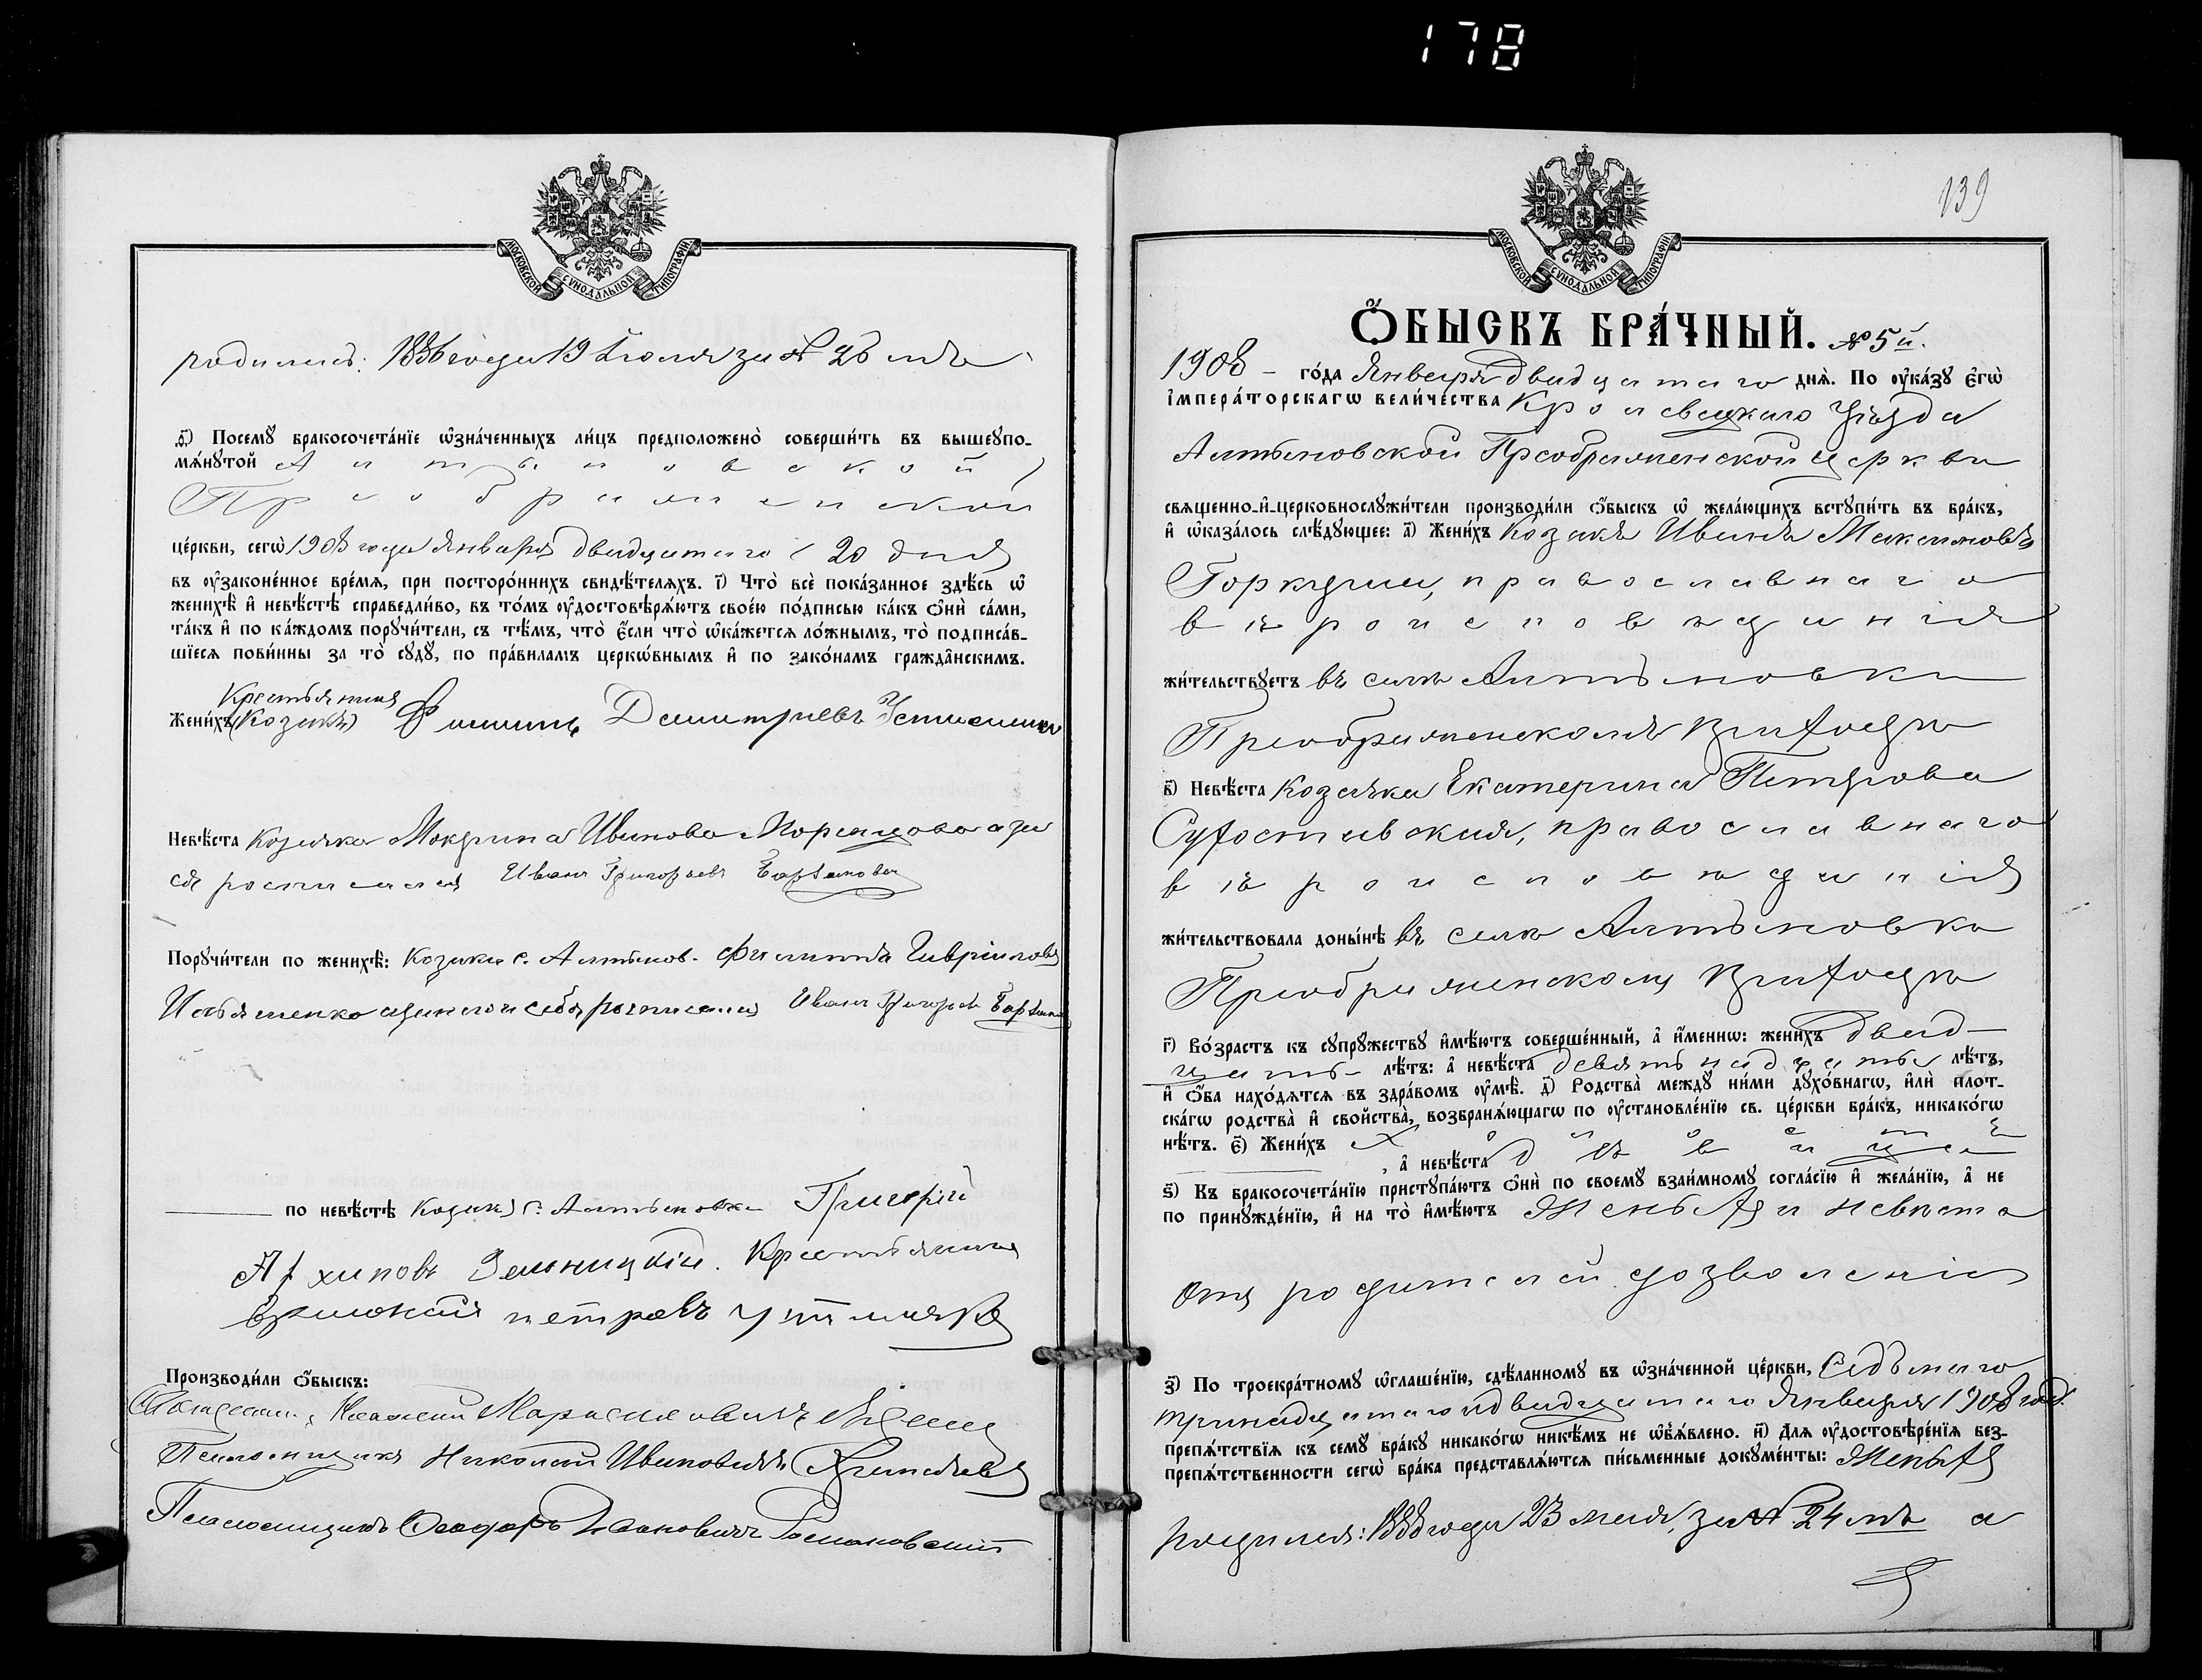 178
МОСКОВСКОЙ СѴНОДАЛЬНОЙ ТИПОГРАФІИ
родилась: 1886 года 19 Іюля за № 26 мъ
ѳ҃) Посемꙋ̀ бракосочета́нїе ѡ҆зна́ченныхъ ли́цъ предположено̀ соверши́ть въ вышеупо-
мѧ́нꙋтой Алтыновской
Преображенской
це́ркви, сегѡ̀ 1908 года Января двадцатого (20 дня
въ ᲂу҆законе́нное вре́мѧ, при посторо́ннихъ свидѣ́телѧхъ. і҃) Что̀ всѐ пока́занное здѣ́сь ѡ҆
женихѣ̀ и҆ невѣ́стѣ справедли́во, въ то́мъ ᲂу҆достовѣрѧ́ютъ свое́ю по́дписью ка́къ ѻ҆нѝ са́ми,
та́къ и҆ по ка́ждомъ порꙋчи́тели, съ тѣ́мъ, что̀ є҆́сли что̀ ѡ҆ка́жетсѧ ло́жнымъ, то̀ подписа́в-
шїесѧ пови́нны за то̀ сꙋдꙋ̀, по пра́виламъ церкѡ́внымъ и҆ по зако́намъ гражда̑нскимъ.
Крестьянинъ
Жени́хъ (Козакъ) Филиппъ Дмитриевъ
Невѣ́ста Козачка Мокрина Иванова
росписался Иванъ Григорьевъ
Порꙋчи́тели по женихѣ̀: Козаки с. Алтынов. Филиппъ Гавріиловъ
росписался Иванъ Григорьев
по невѣ́стѣ Козаки с. Алтыновки Григорій
Архиповъ Зельницкій. Крестьянинъ
петровъ
Производи́ли ѻ҆́быскъ:
Священникъ
Псаломщикъ Николай Ивановичъ
Псаломщикъ Ѳеодоръ
139
МОСКОВСКОЙ СѴНОДАЛЬНОЙ ТИПОГРАФІИ
Ѻ҆́БЫСКЪ БРА́ЧНЫЙ. № 5й.
1908 – го́да Января двадцатого днѧ̀. По ᲂу҆ка́зꙋ є҆гѡ̀
і҆мпера́торскагѡ вели́чества Кролевецкаго Уѣзда
Алтыновской Преображенской церкви
свѧщенно-и҆-церковнослꙋжи́тели производи́ли ѻ҆́быскъ ѡ҆ жела́ющихъ встꙋпи́ть въ бра́къ,
и҆ ѡ҆каза́лось слѣ́дꙋющее: а҃) Жени́хъ Козакъ Иванъ Максимовъ
Горкуша, православнаго
вѣроисповѣданія
жи́тельствꙋетъ въ селѣ Алтыновки
Преображенскомъ приходѣ
в҃) Невѣ́ста Козачка Екатерина Петрова
православнаго
вѣроисповѣданія
жи́тельствовала доны́нѣ въ селѣ Алтыновки
Преображенскомъ приходѣ
г҃) Во́зрастъ къ сꙋпрꙋ́жествꙋ и҆мѣ́ютъ соверше́нный, а҆ и҆́меннѡ: жени́хъ двад-
цать – лѣ́тъ: а҆ невѣ́ста девятнадцать лѣ́тъ,
и҆ ѻ҆́ба нахо́дѧтсѧ въ здра́вомъ ᲂу҆мѣ̀. д҃) Родства̀ междꙋ̀ ни́ми дꙋхо́внагѡ, и҆лѝ пло́т-
скагѡ родства̀ и҆ свойства̀, возбранѧ́ющагѡ по ᲂу҆становле́нїю св. це́ркви бра́къ, никако́гѡ
нѣ́тъ. є҃) Жени́хъ холостъ
, а҆ невѣ́ста дѣвица
ѕ҃) Къ бракосочета́нїю пристꙋпа́ютъ ѻ҆нѝ по своемꙋ̀ взаи́мномꙋ согла́сїю и҆ жела́нїю, а҆ не
по принꙋжде́нїю, и҆ на то̀ и҆мѣ́ютъ Женихъ и невѣста
отъ родителей дозволеніе
з҃) По троекра́тномꙋ ѡ҆глаше́нїю, сдѣ́ланномꙋ въ ѡ҆зна́ченной це́ркви, Седьмого
тринадцатого и двадцатого Января 1908 года
препѧ́тствїѧ къ семꙋ̀ бра́кꙋ никако́гѡ никѣ́мъ не ѡ҆б̾ѧ́влено. и҃) Длѧ ᲂу҆достовѣре́нїѧ без-
препѧ́тственности сегѡ̀ бра́ка представлѧ́ютсѧ пи́сьменные докꙋме́нты: Женихъ
родился: 1888 года 23 мая, за № 24 мъ а